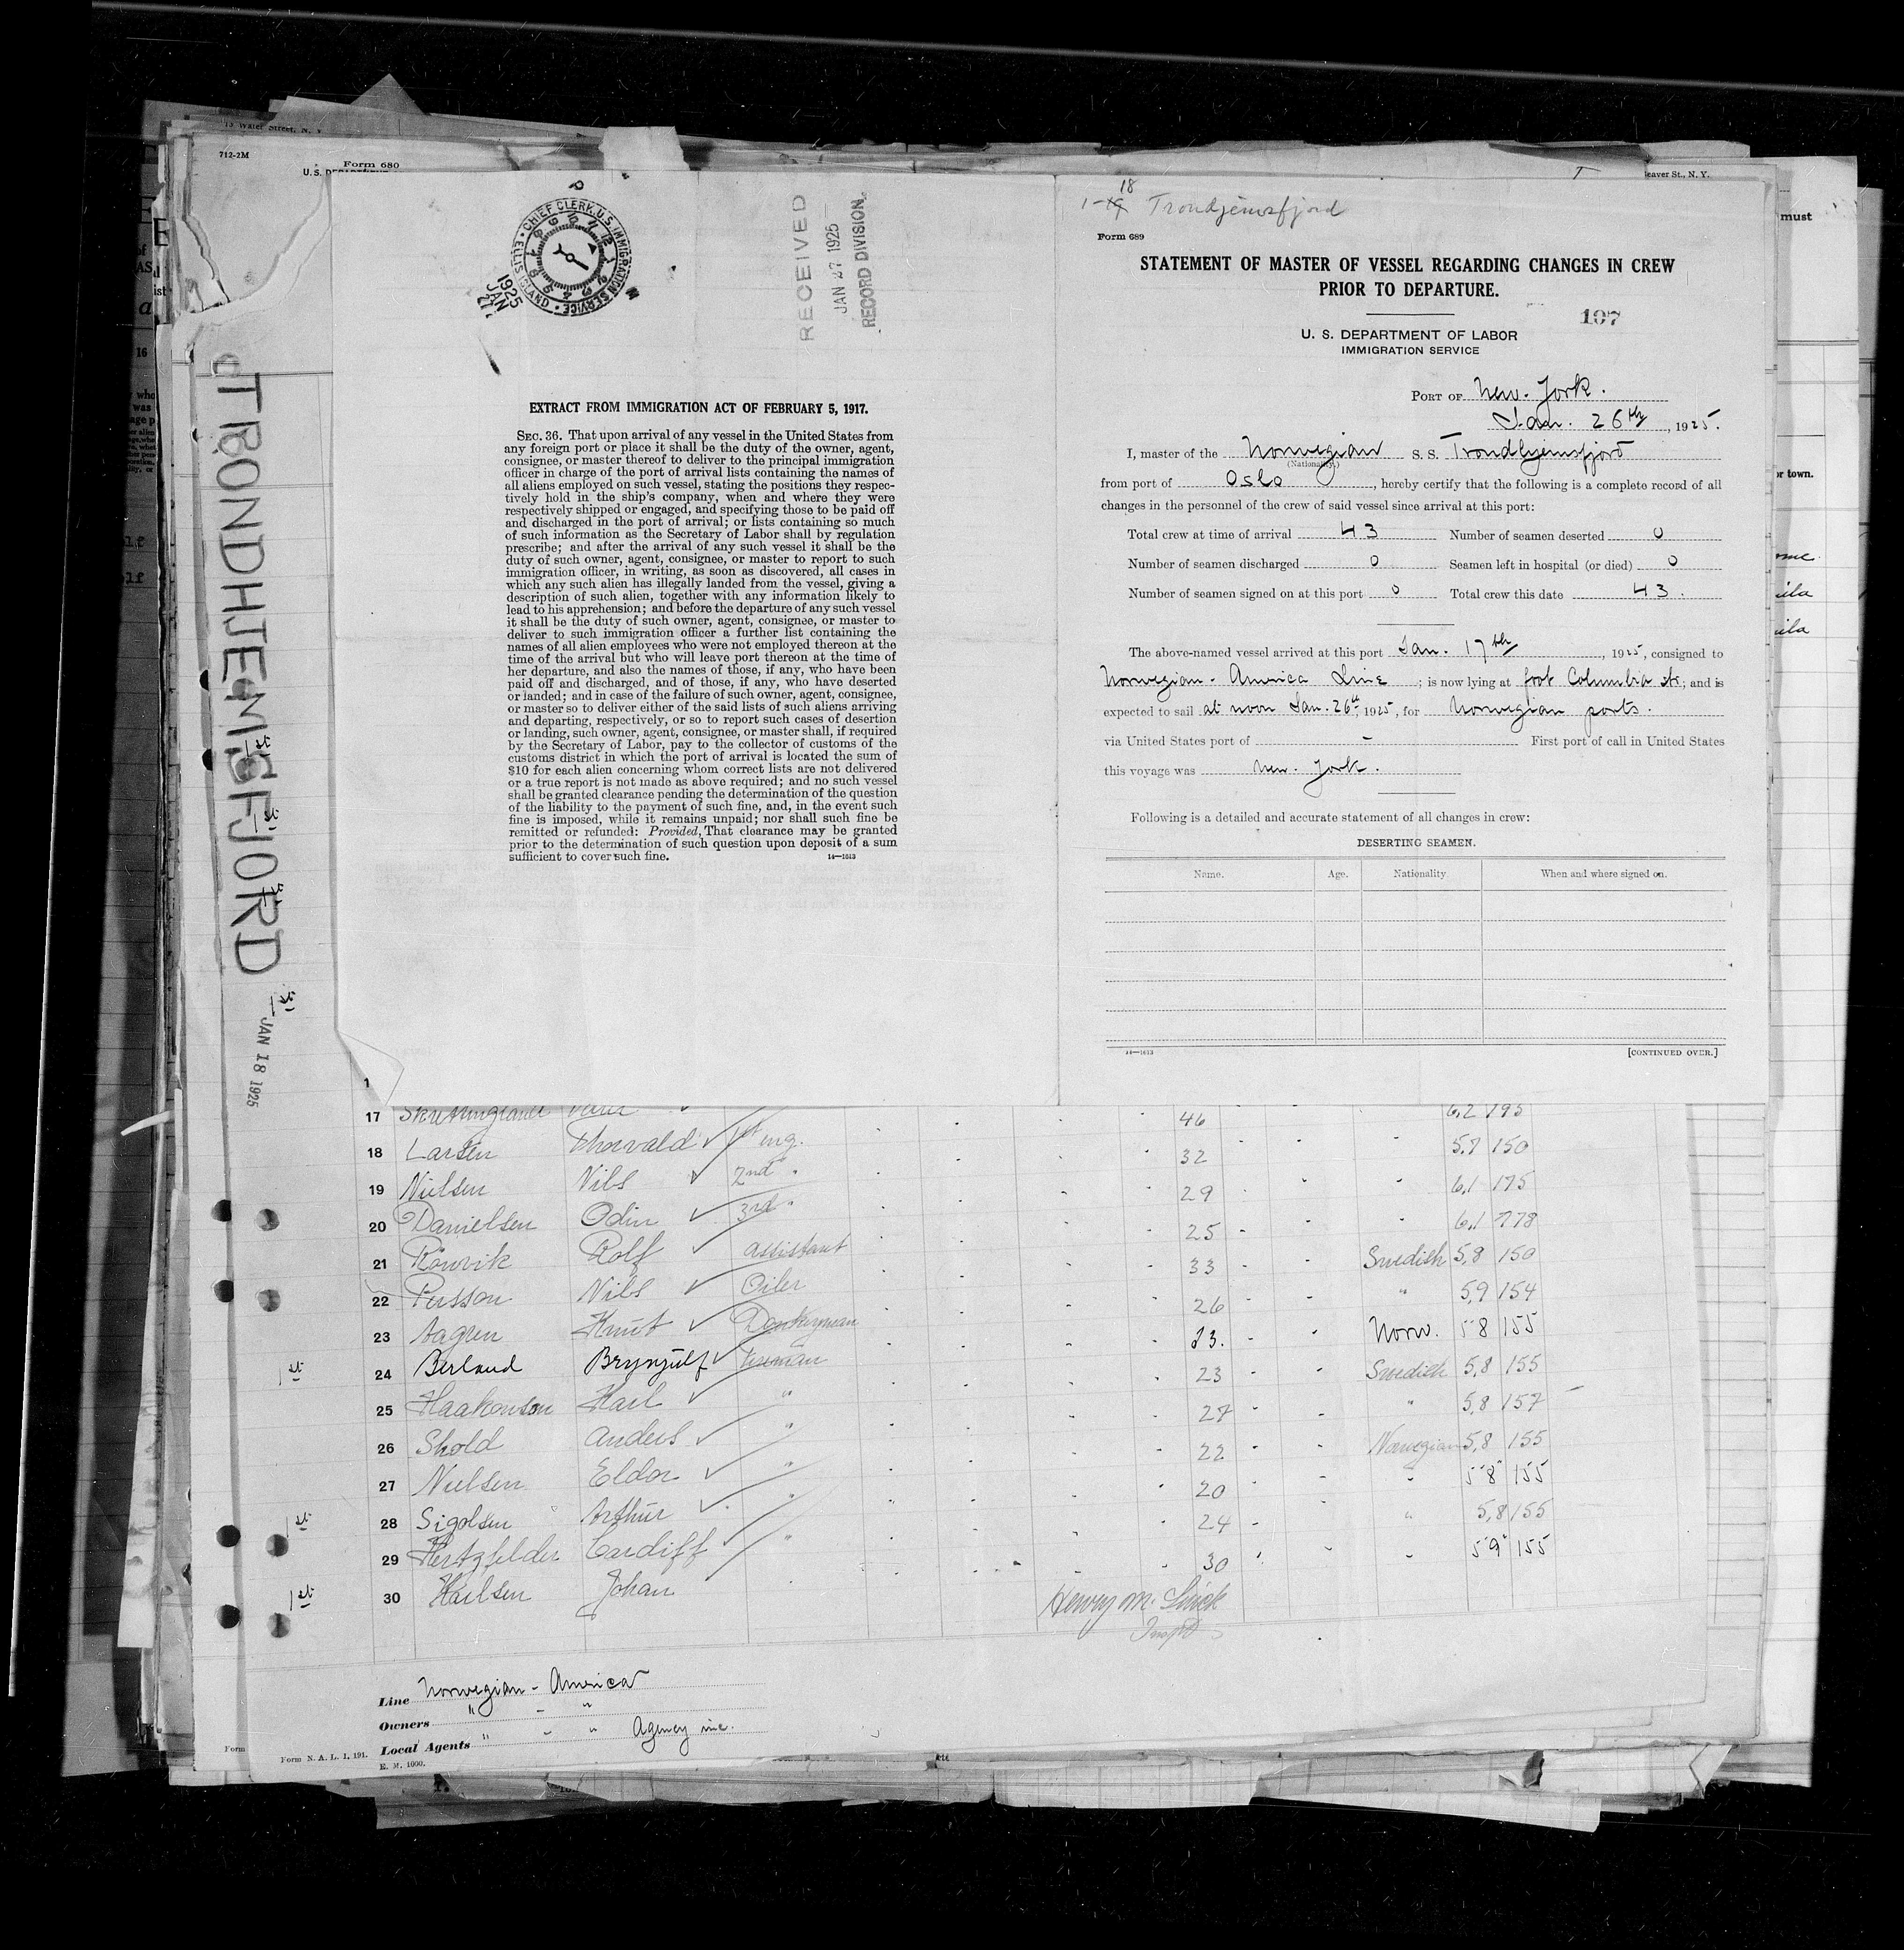 13 Water Street, N. Y.
712-2M
Form 680
U. S. DEPARTMENT
Beaver St., N. Y.
must
or town.
TRONDHJEMSFJORD
JAN 18 1925
CHIEF CLERK, U.S. IMMIGRATION SERVICE
ELLIS ISLAND
1925
JAN
27
RECEIVED
JAN 27 1925
RECORD DIVISION
EXTRACT FROM IMMIGRATION ACT OF FEBRUARY 5, 1917.
SEC. 36. That upon arrival of any vessel in the United States from
any foreign port or place it shall be the duty of the owner, agent,
consignee, or master thereof to deliver to the principal immigration
officer in charge of the port of arrival lists containing the names of
all aliens employed on such vessel, stating the positions they respec-
tively hold in the ship's company, when and where they were
respectively shipped or engaged, and specifying those to be paid off
and discharged in the port of arrival; or lists containing so much
of such information as the Secretary of Labor shall by regulation
prescribe; and after the arrival of any such vessel it shall be the
duty of such owner, agent, consignee, or master to report to such
immigration officer, in writing, as soon as discovered, all cases in
which any such alien has illegally landed from the vessel, giving a
description of such alien, together with any information likely to
lead to his apprehension; and before the departure of any such vessel
it shall be the duty of such owner, agent, consignee, or master to
deliver to such immigration officer a further list containing the
names of all alien employees who were not employed thereon at the
time of the arrival but who will leave port thereon at the time of
her departure, and also the names of those, if any, who have been
paid off and discharged, and of those, if any, who have deserted
or landed; and in case of the failure of such owner, agent, consignee,
or master so to deliver either of the said lists of such aliens arriving
and departing, respectively, or so to report such cases of desertion
or landing, such owner, agent, consignee, or master shall, if required
by the Secretary of Labor, pay to the collector of customs of the
customs district in which the port of arrival is located the sum of
$10 for each alien concerning whom correct lists are not delivered
or a true report is not made as above required; and no such vessel
shall be granted clearance pending the determination of the question
of the liability to the payment of such fine, and, in the event such
fine is imposed, while it remains unpaid; nor shall such fine be
remitted or refunded: Provided, That clearance may be granted
prior to the determination of such question upon deposit of a sum
sufficient to cover such fine.
14—1613
18
1-19 Trondjemsfjord
Form 689
STATEMENT OF MASTER OF VESSEL REGARDING CHANGES IN CREW
PRIOR TO DEPARTURE.
107
U. S. DEPARTMENT OF LABOR
IMMIGRATION SERVICE
PORT OF New-York.
Jan. 26th, 1925.
I, master of the Norwegian S. S. Trondhjemsfjord
(Nationality.)
from port of Oslo, hereby certify that the following is a complete record of all
changes in the personnel of the crew of said vessel since arrival at this port:
Total crew at time of arrival 43 Number of seamen deserted 0
Number of seamen discharged 0 Seamen left in hospital (or died) 0
Number of seamen signed on at this port 0 Total crew this date 43.
The above-named vessel arrived at this port Jan. 17th, 1925, consigned to
Norwegian-America Line; is now lying at foot Columbia str; and is
expected to sail at noon Jan. 26th, 1925, for Norwegian ports.
via United States port of - First port of call in United States
this voyage was New-York.
Following is a detailed and accurate statement of all changes in crew:
DESERTING SEAMEN.
Name. Age. Nationality. When and where signed on.
14—1613 [CONTINUED OVER.]
17 46 6,2 195
18 Larsen Thorvald 1st eng. 32 5,7 150
19 Nielsen Nils 2nd " 29 6,1 175
20 Danielsen Odin 3rd " 25 6,1 178
21 Rönvik Rolf assistant 33 Swedish 5,8 150
22 Persson Nils Oiler 26 " 5,9 154
23 Aagren Knut Donkeyman 33. Norw. 5 8 155
1st 24 Berland Brynjulf fireman 23 Swedish 5,8 155
25 Haakonson Karl " 27 " 5,8 157
26 Shold Anders " 22 Norwegian 5,8 155
27 Nielsen Eldor " 20 " 5 8 155
1st 28 Sigolsen Arthur " 24 " 5,8 155
29 Hertzfelder Cardiff " 30 " 5 9 155
1st 30 Karlsen Johan
Henry M.
Insp
Line Norwegian-America
Owners " - "
Local Agents " - " Agency inc.
Form
Form N. A. L. 1, 191.
E. M. 1000.